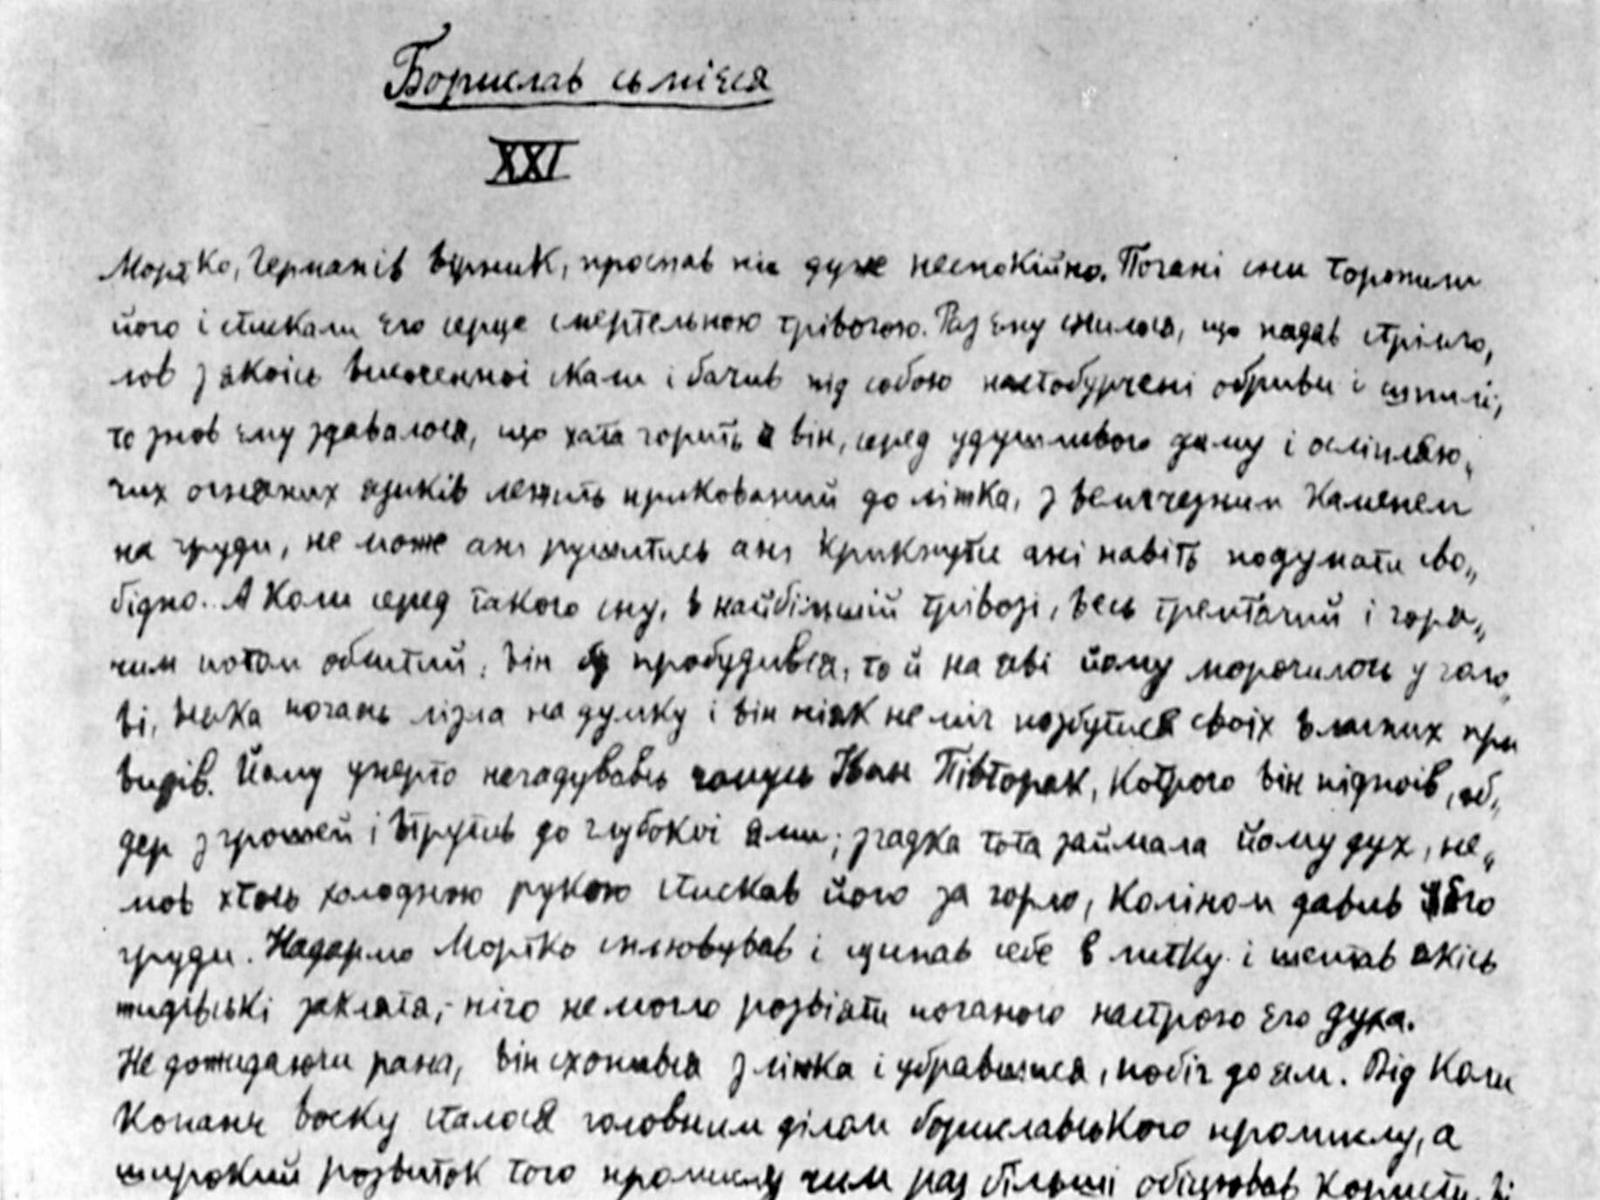 Борислав сьмієся
XXI
Мортко, Германів вірник, проспав ніч дуже неспокійно. Погані сни торопили
його і стискали єго серце смертельною трівогою. Раз єму снилося, що падав стрімго„
лов з якоїсь височенної скали і бачив під собою настобурчені обриви і шпилі,
то знов єму здавалося, що хата горить а він, серед удушливого диму і осліпляю„
чих огняних язиків лежить прикований до ліжка, з величезним каменем
на груди, не може ані рушитись ані крикнути ані навіть подумати сво„
бідно. А коли серед такого сну, в найбільшій трівозі, весь тремтячий і горя„
чим потом обштий, він пробудився, то й на яві йому морочилось у голо„
ві, всяка погань лізла на думку і він ніяк не міг позбутися своїх власних при
видів. Йому уперто нагадувавсь чомусь Іван Півторак, котрого він підпоїв, об„
дер з грошей і втрутив до глубокої ями; згадка тота займала йому дух, не„
мов хтось холодною рукою стискав його за горло, коліном давив його
груди. Надармо Мортко спльовував і щипав себе в литку і шептав якісь
жидівські закляття, ніщо не могло розвіяти поганого настрою єго духа.
Не дожидаючи рана, він схопився з ліжка і убравшися, побіг до ям. Від коли
копанє воску сталося головним ділом бориславського промислу, а
широкий розвиток того промислу чим раз більші обіцював користи,